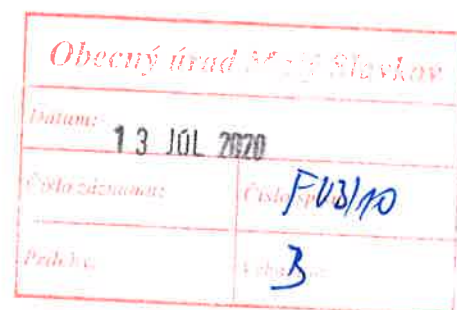 Obecný úrad Malý Slavkov
Dátum:
13 JÚL 2020
Číslo záznamu: Číslo spisu:
Prílohy: